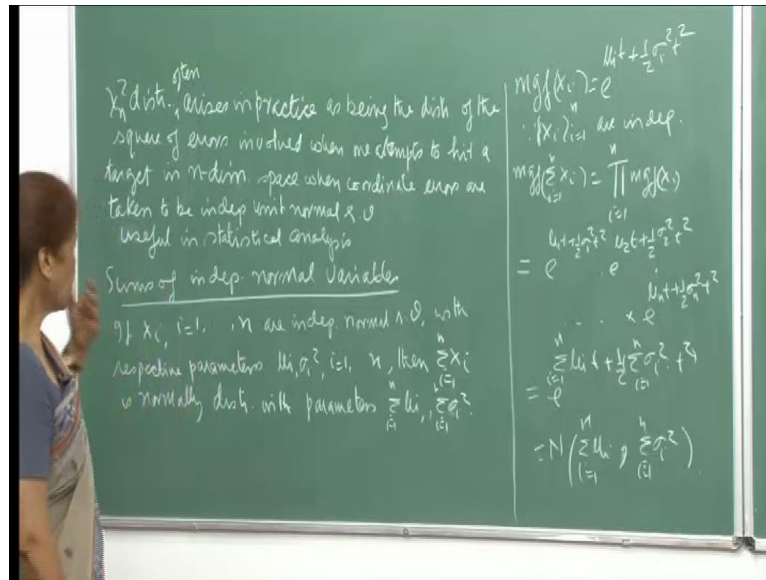 often
χ²ₙ distn. arises in practice as being the distn of the
square of errors involved when one attempts to hit a
target in n-dim. space when coordinate errors are
taken to be indep unit normal r.v
useful in statistical analysis
Sums of indep. normal variables
If Xi, i=1, .. n are indep. normal r.v, with
respective parameters μi, σi², i=1, n, then Σ_{i=1}^{n} Xi
is normally distn. with parameters Σ_{i=1}^{n} μi, Σ_{i=1}^{n} σi².
mgf(Xi) = e^{μit + ½σi²t²}
∵ {Xi}_{i=1}^{n} are indep.
mgf(Σ_{i=1}^{n} Xi) = ∏_{i=1}^{n} mgf(Xi)
= e^{μ1t + ½σ1²t²} . e^{μ2t + ½σ2²t²}
.... × e^{μnt + ½σn²t²}
= e^{Σ_{i=1}^{n} μi t + ½ Σ_{i=1}^{n} σi² t²}
= N(Σ_{i=1}^{n} μi, Σ_{i=1}^{n} σi²).